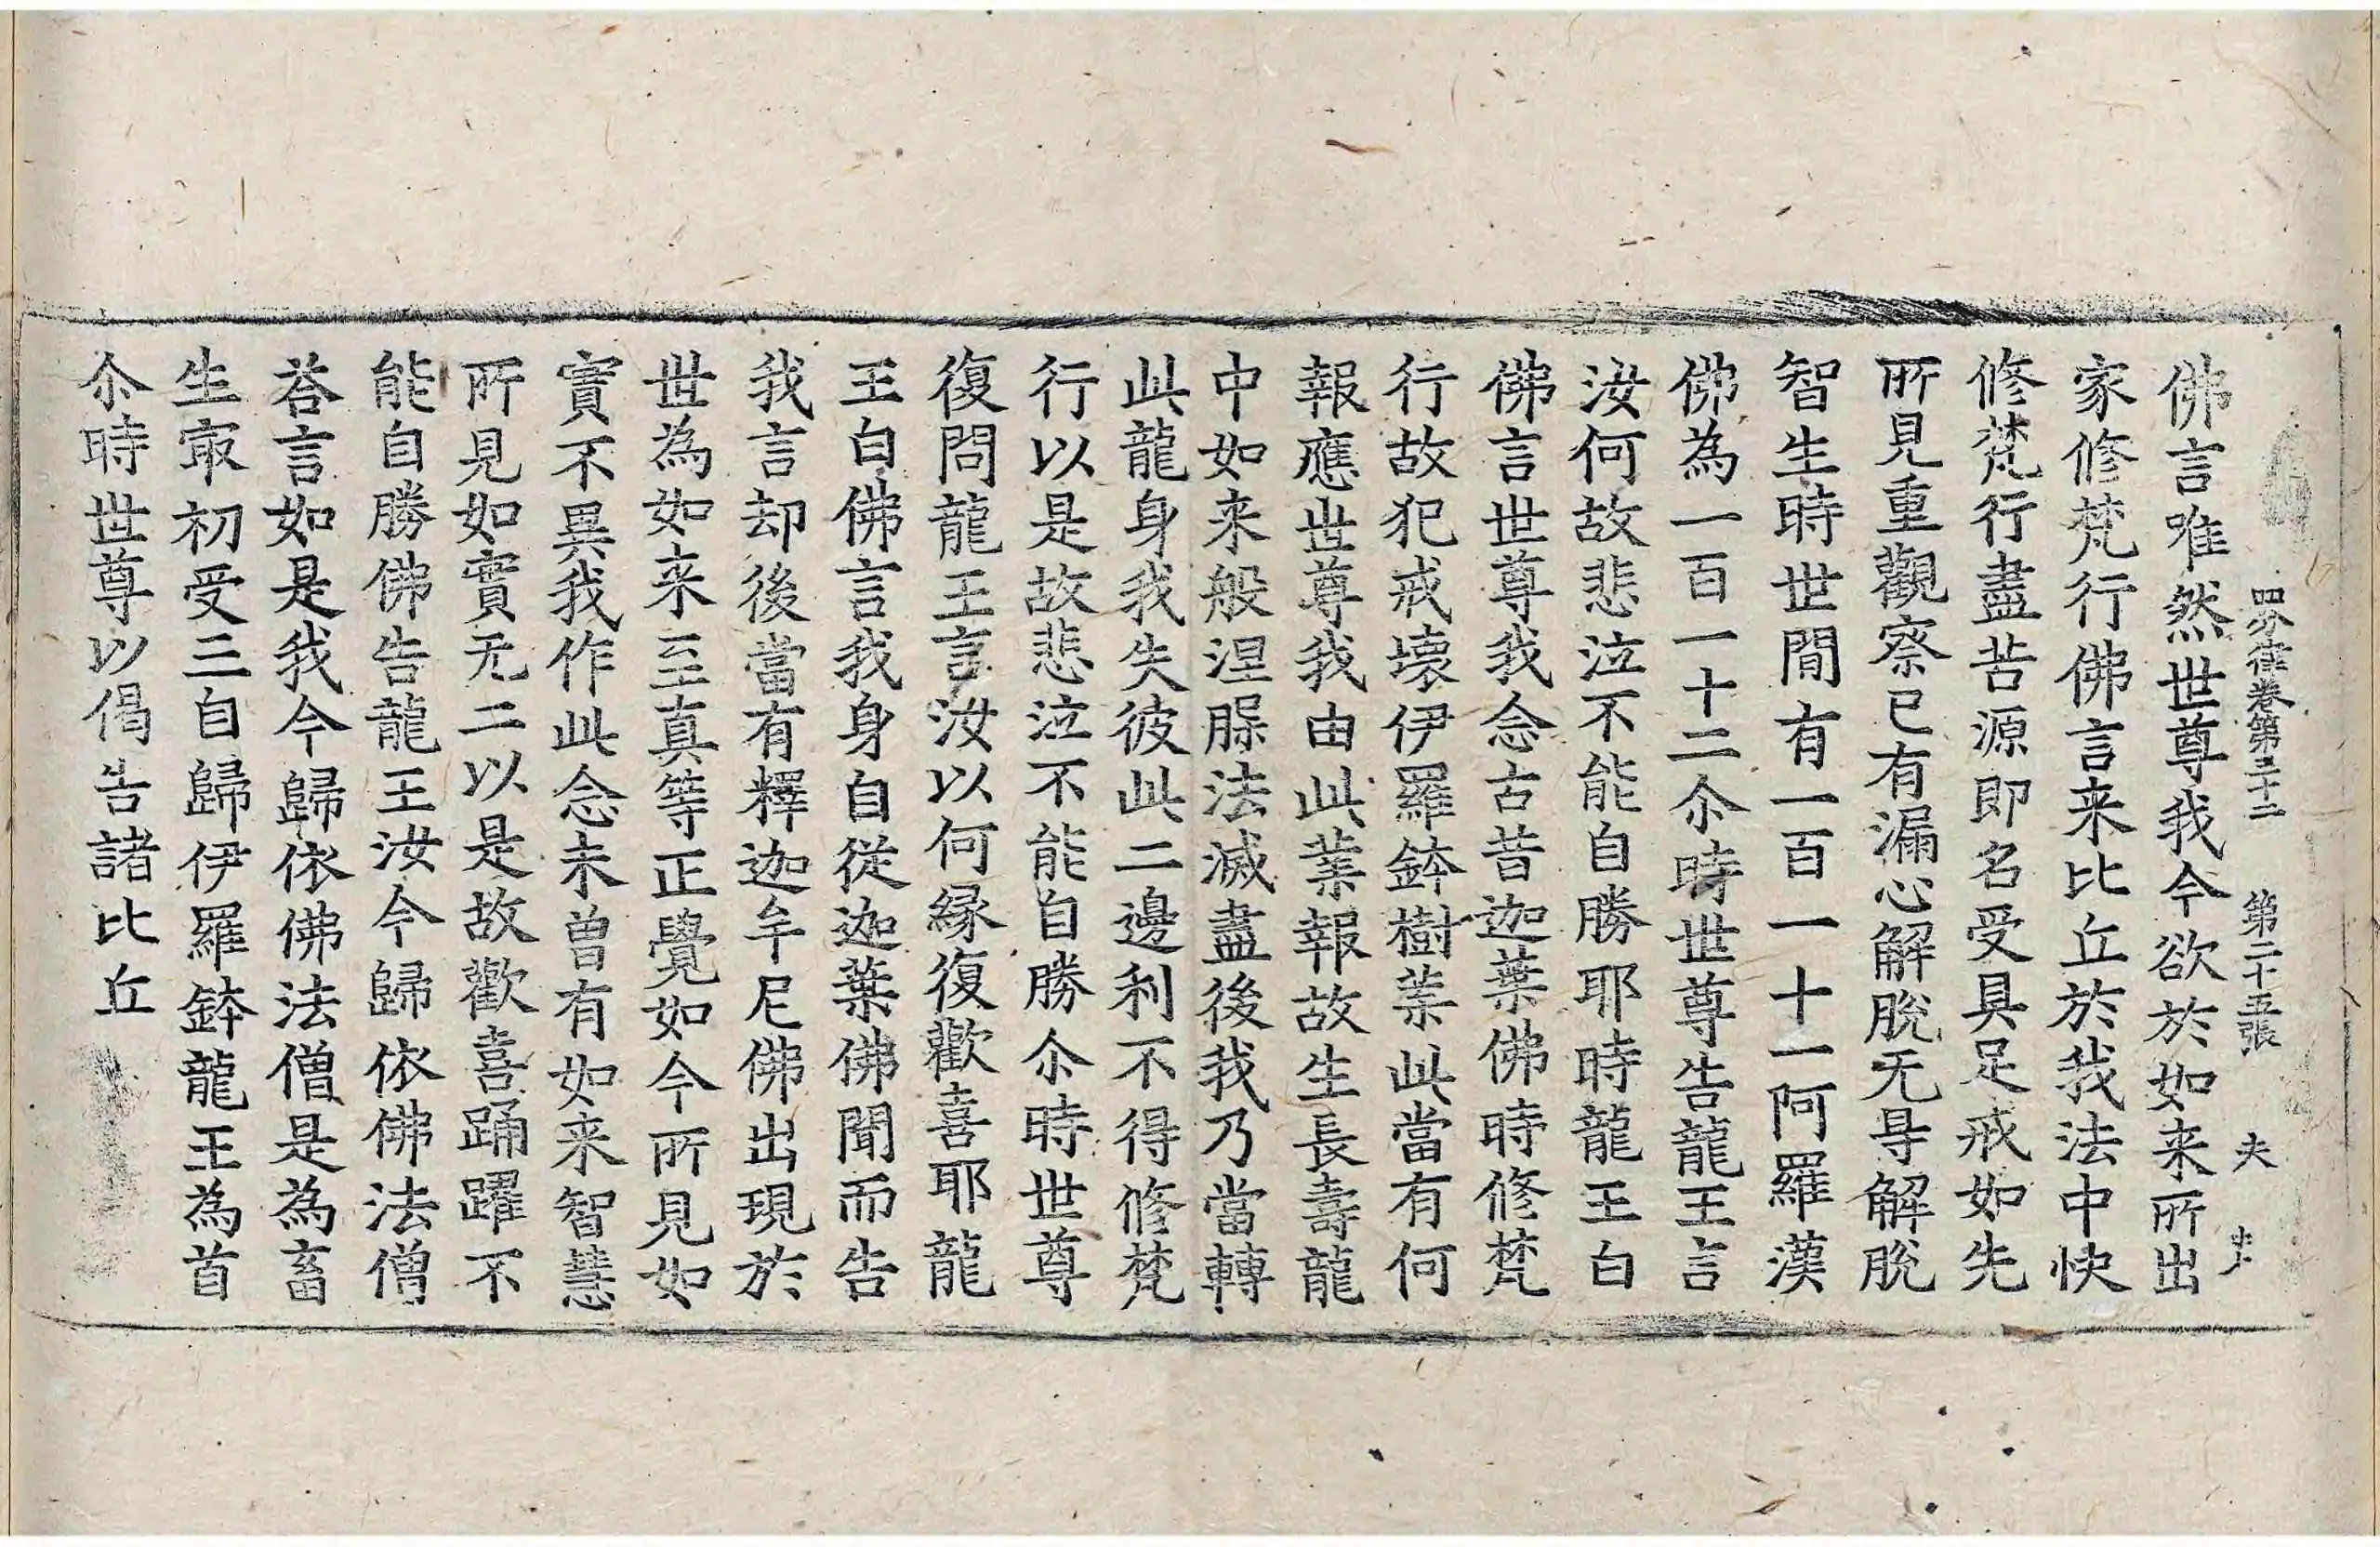 四分律卷第三十二 第二十五張 夫
佛言唯然世尊我今欲於如来所出
家修梵行佛言来比丘於我法中快
修梵行盡苦源即名受具足戒如先
所見重觀察已有漏心解脫无㝵解脫
智生時世間有一百一十一阿羅漢
佛為一百一十二尒時世尊告龍王言
汝何故悲泣不能自勝耶時龍王白
佛言世尊我念古昔迦葉佛時修梵
行故犯戒壞伊羅鉢樹葉此當有何
報應世尊我由此業報故生長壽龍
中如来般涅槃法滅盡後我乃當轉
此龍身我失彼此二邊利不得修梵
行以是故悲泣不能自勝尒時世尊
復問龍王言汝以何緣復歡喜耶龍
王白佛言我身自從迦葉佛聞而告
我言却後當有釋迦牟尼佛出現於
世為如来至真等正覺如今所見如
實不異我作此念未曾有如来智慧
所見如實无二以是故歡喜踊躍不
能自勝佛告龍王汝今歸依佛法僧
荅言如是我今歸依佛法僧是為畜
生㝡初受三自歸伊羅鉢龍王為首
尒時世尊以偈告諸比丘